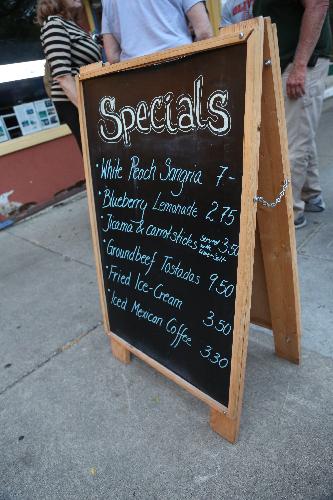 Specials
• White Peach Sangria 7-
• Blueberry Lemonade 2.75
• Jicama & carrot sticks served with lime & salt 3.50
• Groundbeef Tostadas 9.50
• Fried Ice-Cream 3.50
• Iced Mexican Coffee 3.30